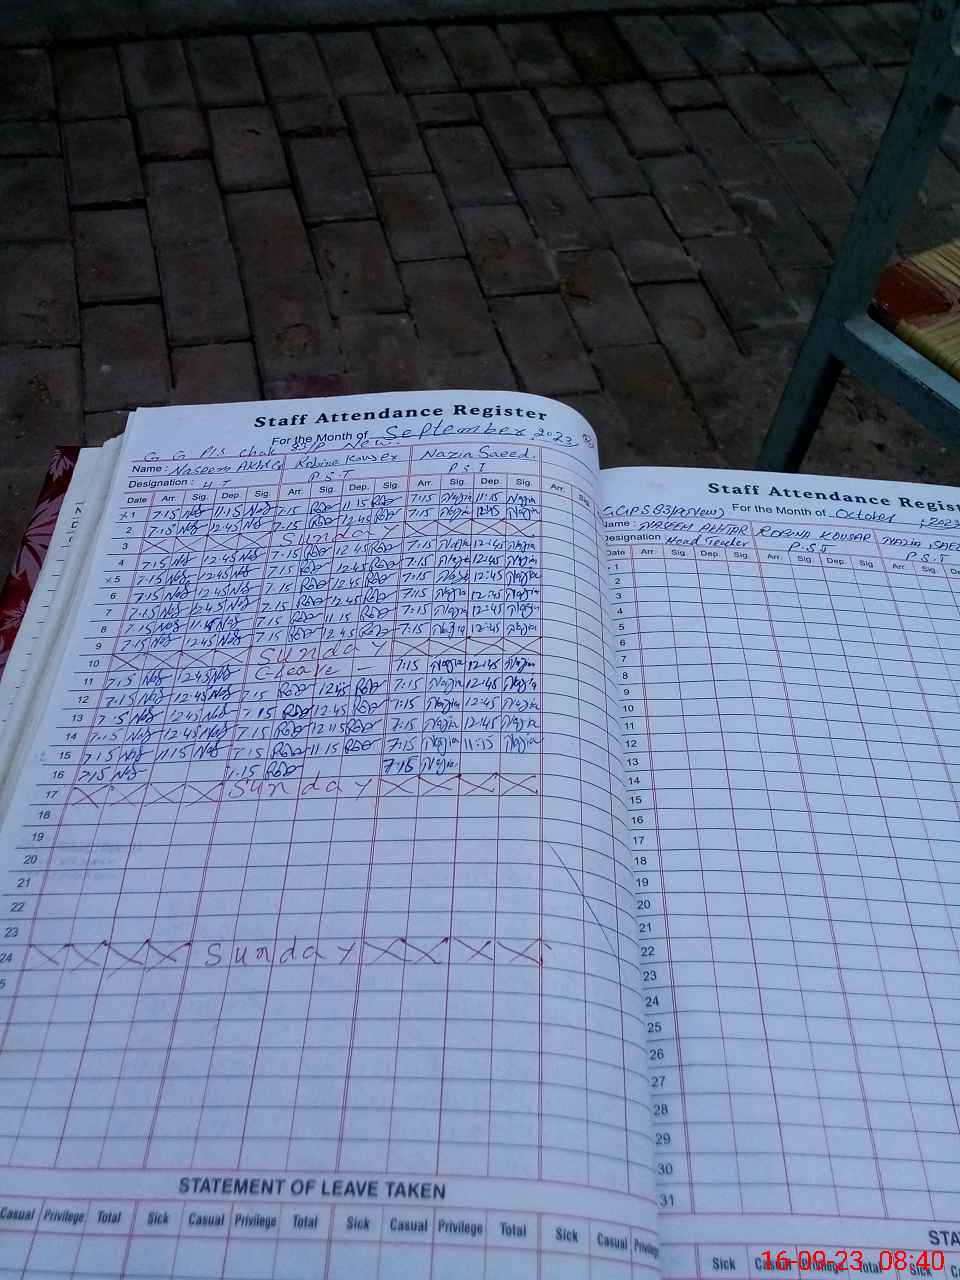 Staff Attendance Register
For the Month of September 2023
G G P/s chak 83/P New.
Name : Naseem Akhter Robina Kouser Nazia Saeed.
Designation : H T P.S.T P.S.T
Date Arr. Sig. Dep. Sig. Arr. Sig. Dep. Sig. Arr. Sig. Dep. Sig. Arr. Sig.
1 7:15 11:15 7:15 11:15 7:15 Nazia 11:15 Nazia
2 7:15 12:45 7:15 12:45 7:15 Nazia 12:45 Nazia
3 Sunday
4 7:15 12:45 7:15 12:45 7:15 Nazia 12:45 Nazia
5 7:15 12:45 7:15 12:45 7:15 Nazia 12:45 Nazia
6 7:15 12:45 7:15 12:45 7:15 Nazia 12:45 Nazia
7 7:15 12:45 7:15 12:45 7:15 Nazia 12:45 Nazia
8 7:15 7:15 11:15 7:15 Nazia Nazia
9 7:15 12:45 7:15 12:45 7:15 Nazia 12:45 Nazia
10 Sunday
11 7:15 12:45 C-leave — 7:15 Nazia 12:45 Nazia
12 7:15 12:45 7:15 12:45 7:15 Nazia 12:45 Nazia
13 7:15 12:45 7:15 12:45 7:15 Nazia 12:45 Nazia
14 7:15 12:45 7:15 7:15 Nazia 12:45 Nazia
15 7:15 11:15 7:15 11:15 7:15 Nazia 11:15 Nazia
16 7:15 7:15 7:15 Nazia
17 Sunday
18
19
20
21
22
23
24 Sunday
5
STATEMENT OF LEAVE TAKEN
Casual Privilege Total Sick Casual Privilege Total Sick Casual Privilege Total Sick Casual Privilege
Staff Attendance Regist
For the Month of October 2023
Name : NASEEM AKHTAR ROBINA KOUSAR NAZIA SAEE
Designation Head Teacher P.S.T P.S.T
Date Arr. Sig. Dep. Sig. Arr. Sig. Dep. Sig. Arr. Sig. De
1
2
3
4
5
6
7
8
9
10
11
12
13
14
15
16
17
18
19
20
21
22
23
24
25
26
27
28
29
30
31
STA
Sick Casual Privilege Total Sick C
16-09-23 08:40